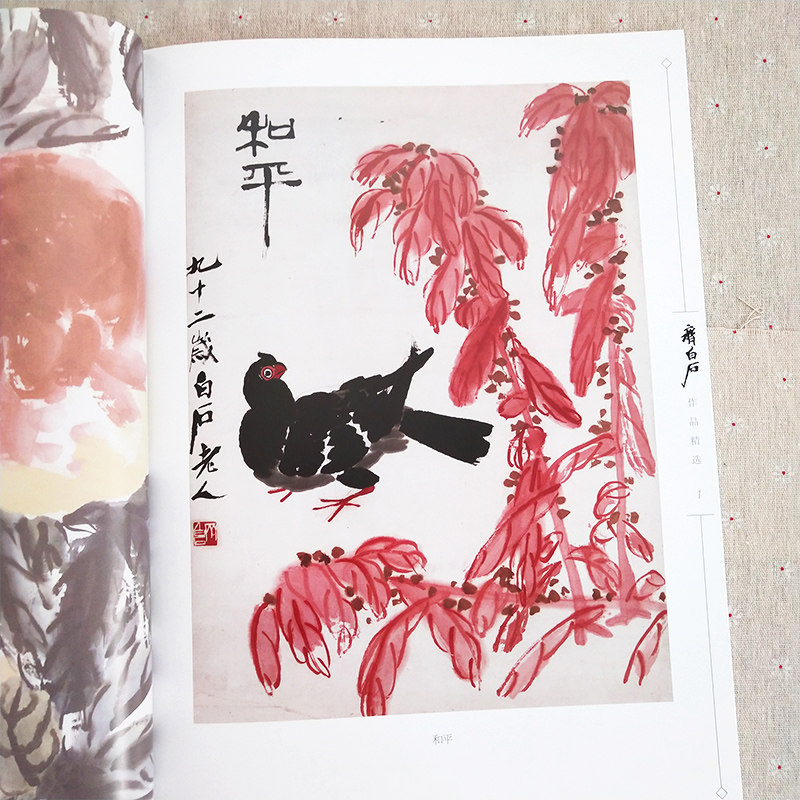 和平
九十二岁白石老人
齊白石
作品精选
1
和平